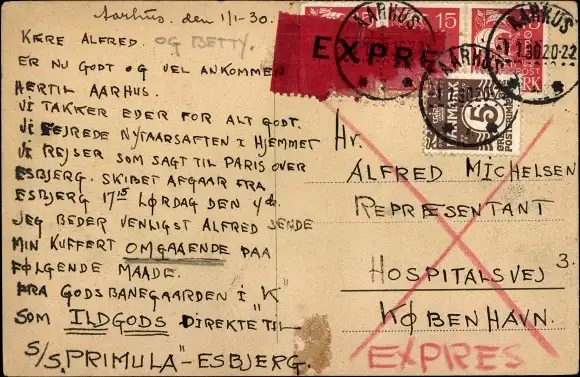 Aarhus. den 1/1-30.
KÆRE ALFRED. OG BETTY.
ER NU GODT OG VEL ANKOMMEN
HERTIL AARHUS.
VI TAKKER EDER FOR ALT GODT.
VI FEJREDE NYTAARSAFTEN I HJEMMET
VI REJSER SOM SAGT TIL PARIS OVER
ESBJERG. SKIBET AFGAAR FRA
ESBJERG 17¹⁵ LØRDAG DEN 4de.
JEG BEDER VENLIGST ALFRED SENDE
MIN KUFFERT OMGAAENDE PAA
FØLGENDE MAADE.
FRA GODSBANEGAARDEN I "K"
SOM ILDGODS DIREKTE TIL
S/S. "PRIMULA" - ESBJERG.
EXPRE
15
AARHUS
AARHUS
1.1.30.20-22
AARHUS
5
HR.
ALFRED MICHELSEN
REPRÆSENTANT
HOSPITALSVEJ 3.
KØBENHAVN.
EXPRES